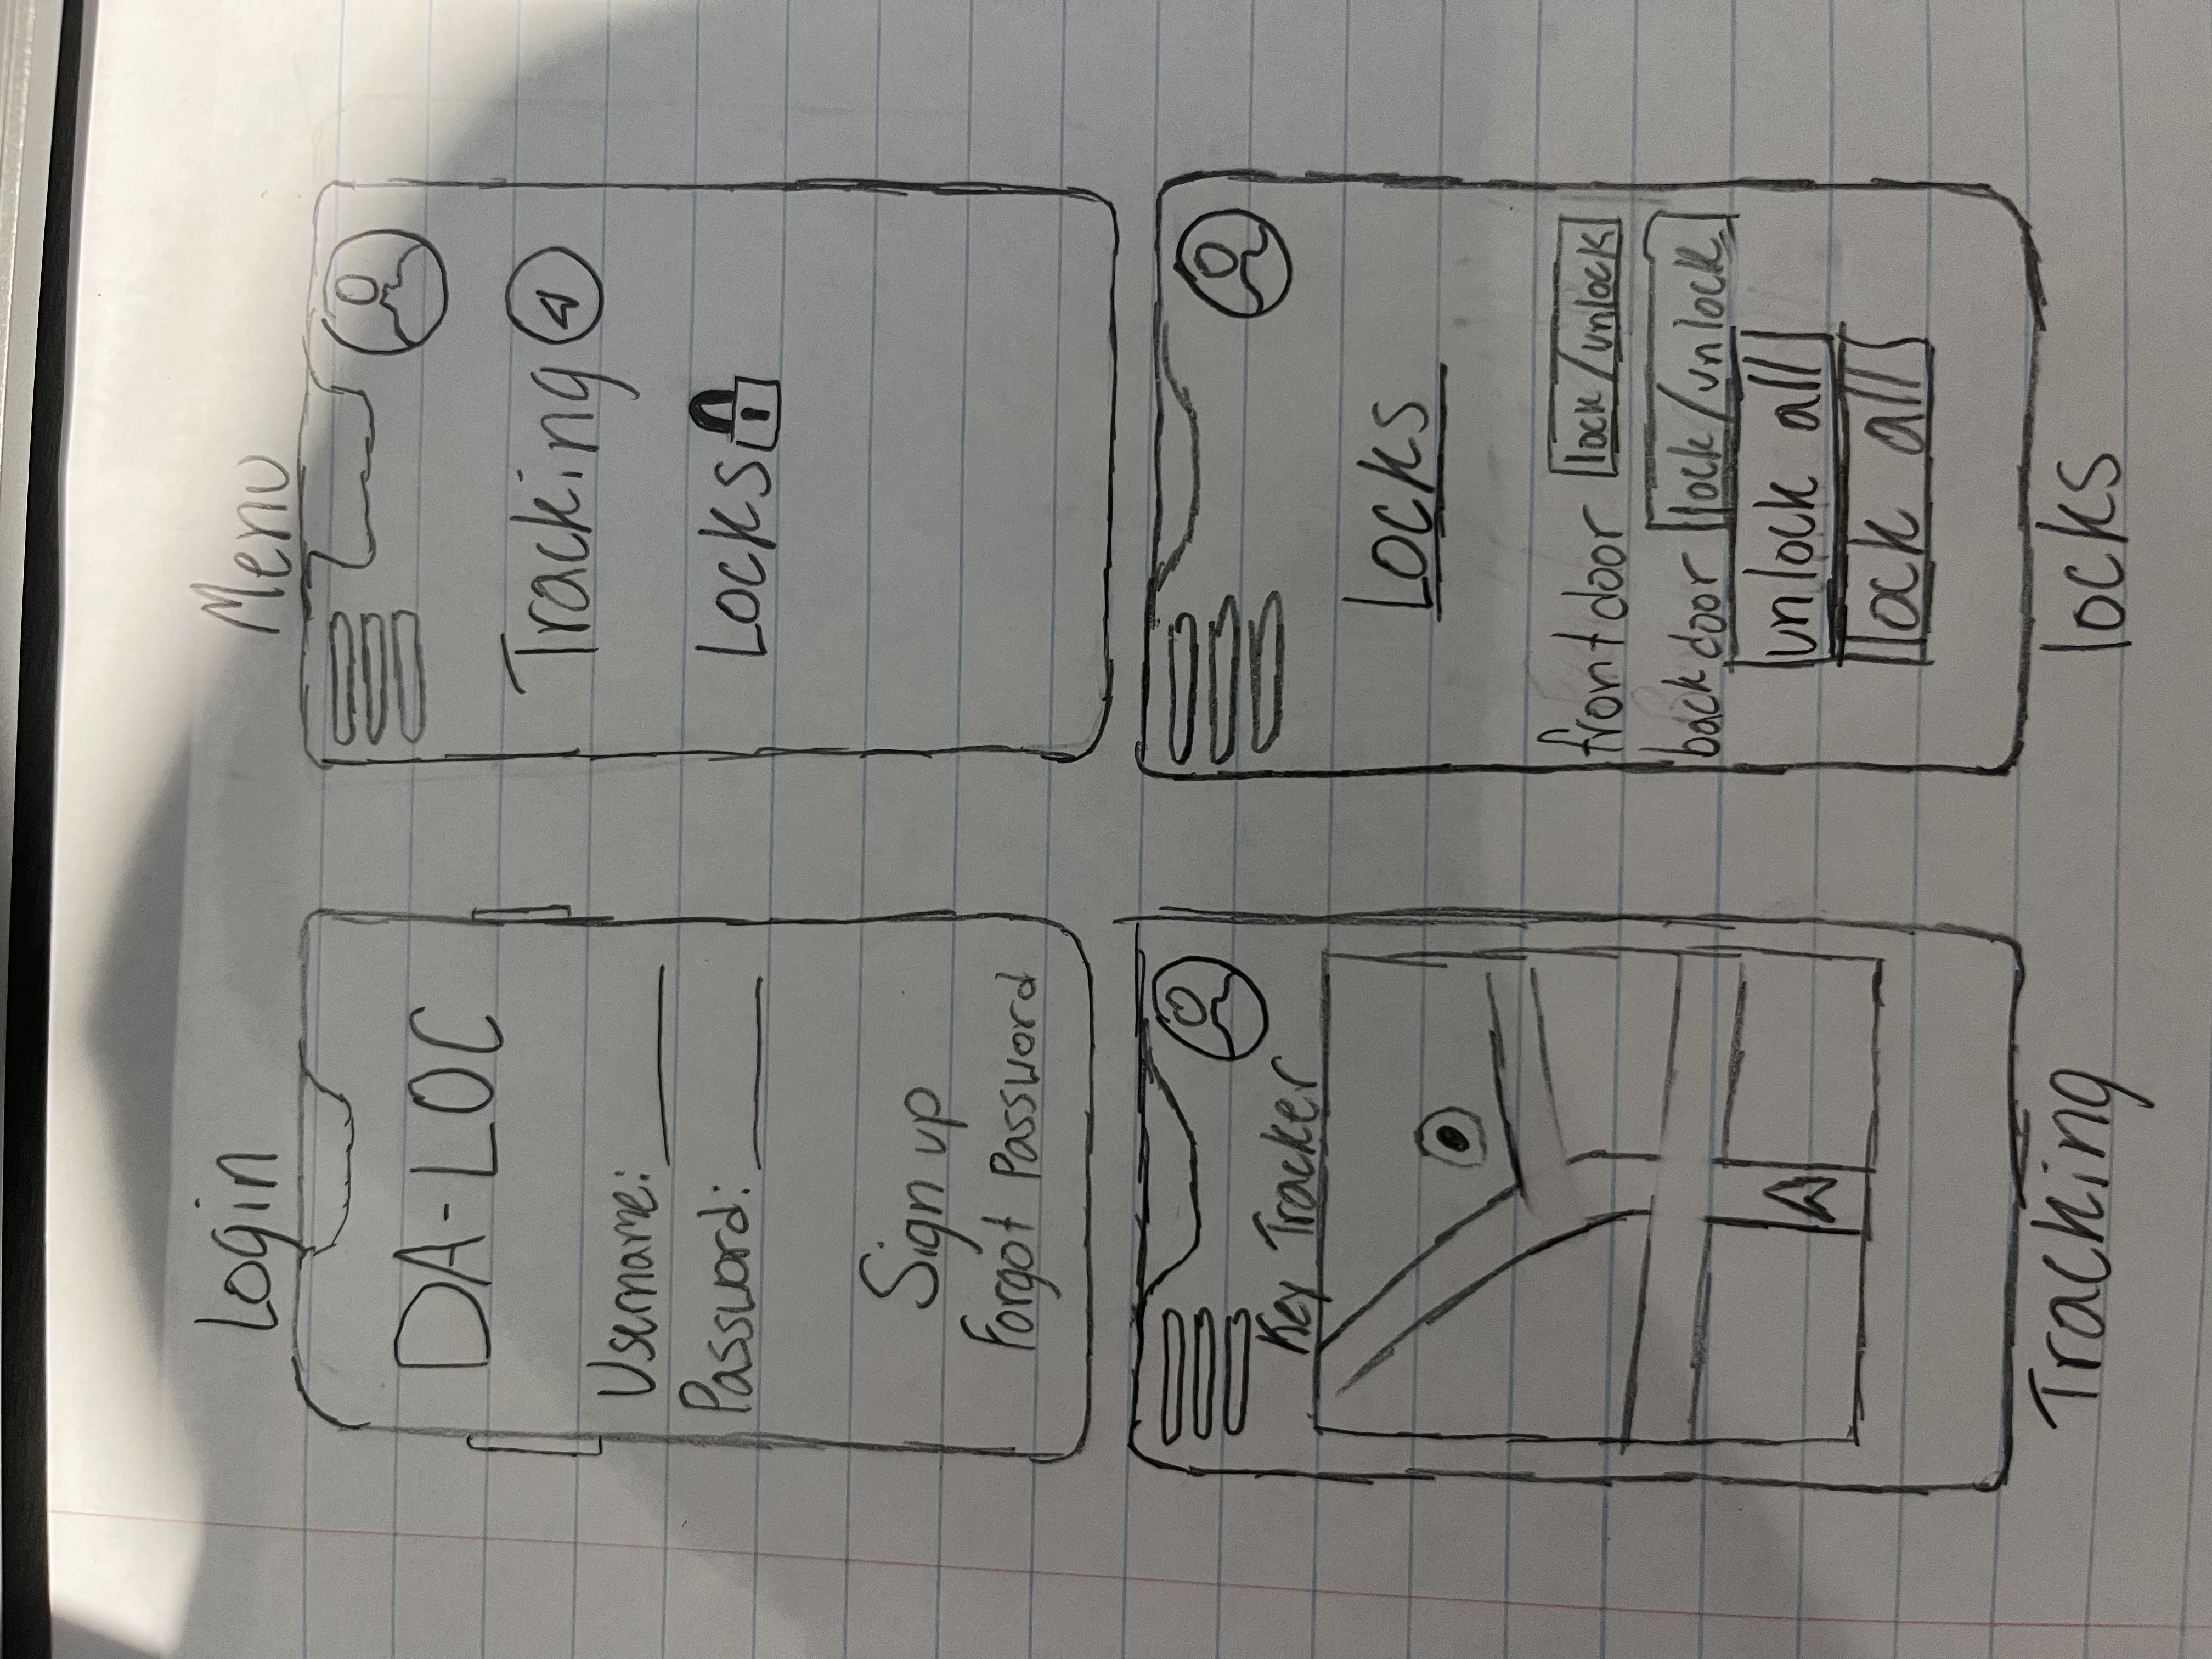 Login
DA-LOC
Username:
Password:
Sign up
Forgot Password
Menu
Tracking
Locks
Key Tracker
Tracking
Locks
front door lock/unlock
back door lock/unlock
unlock all
lock all
locks